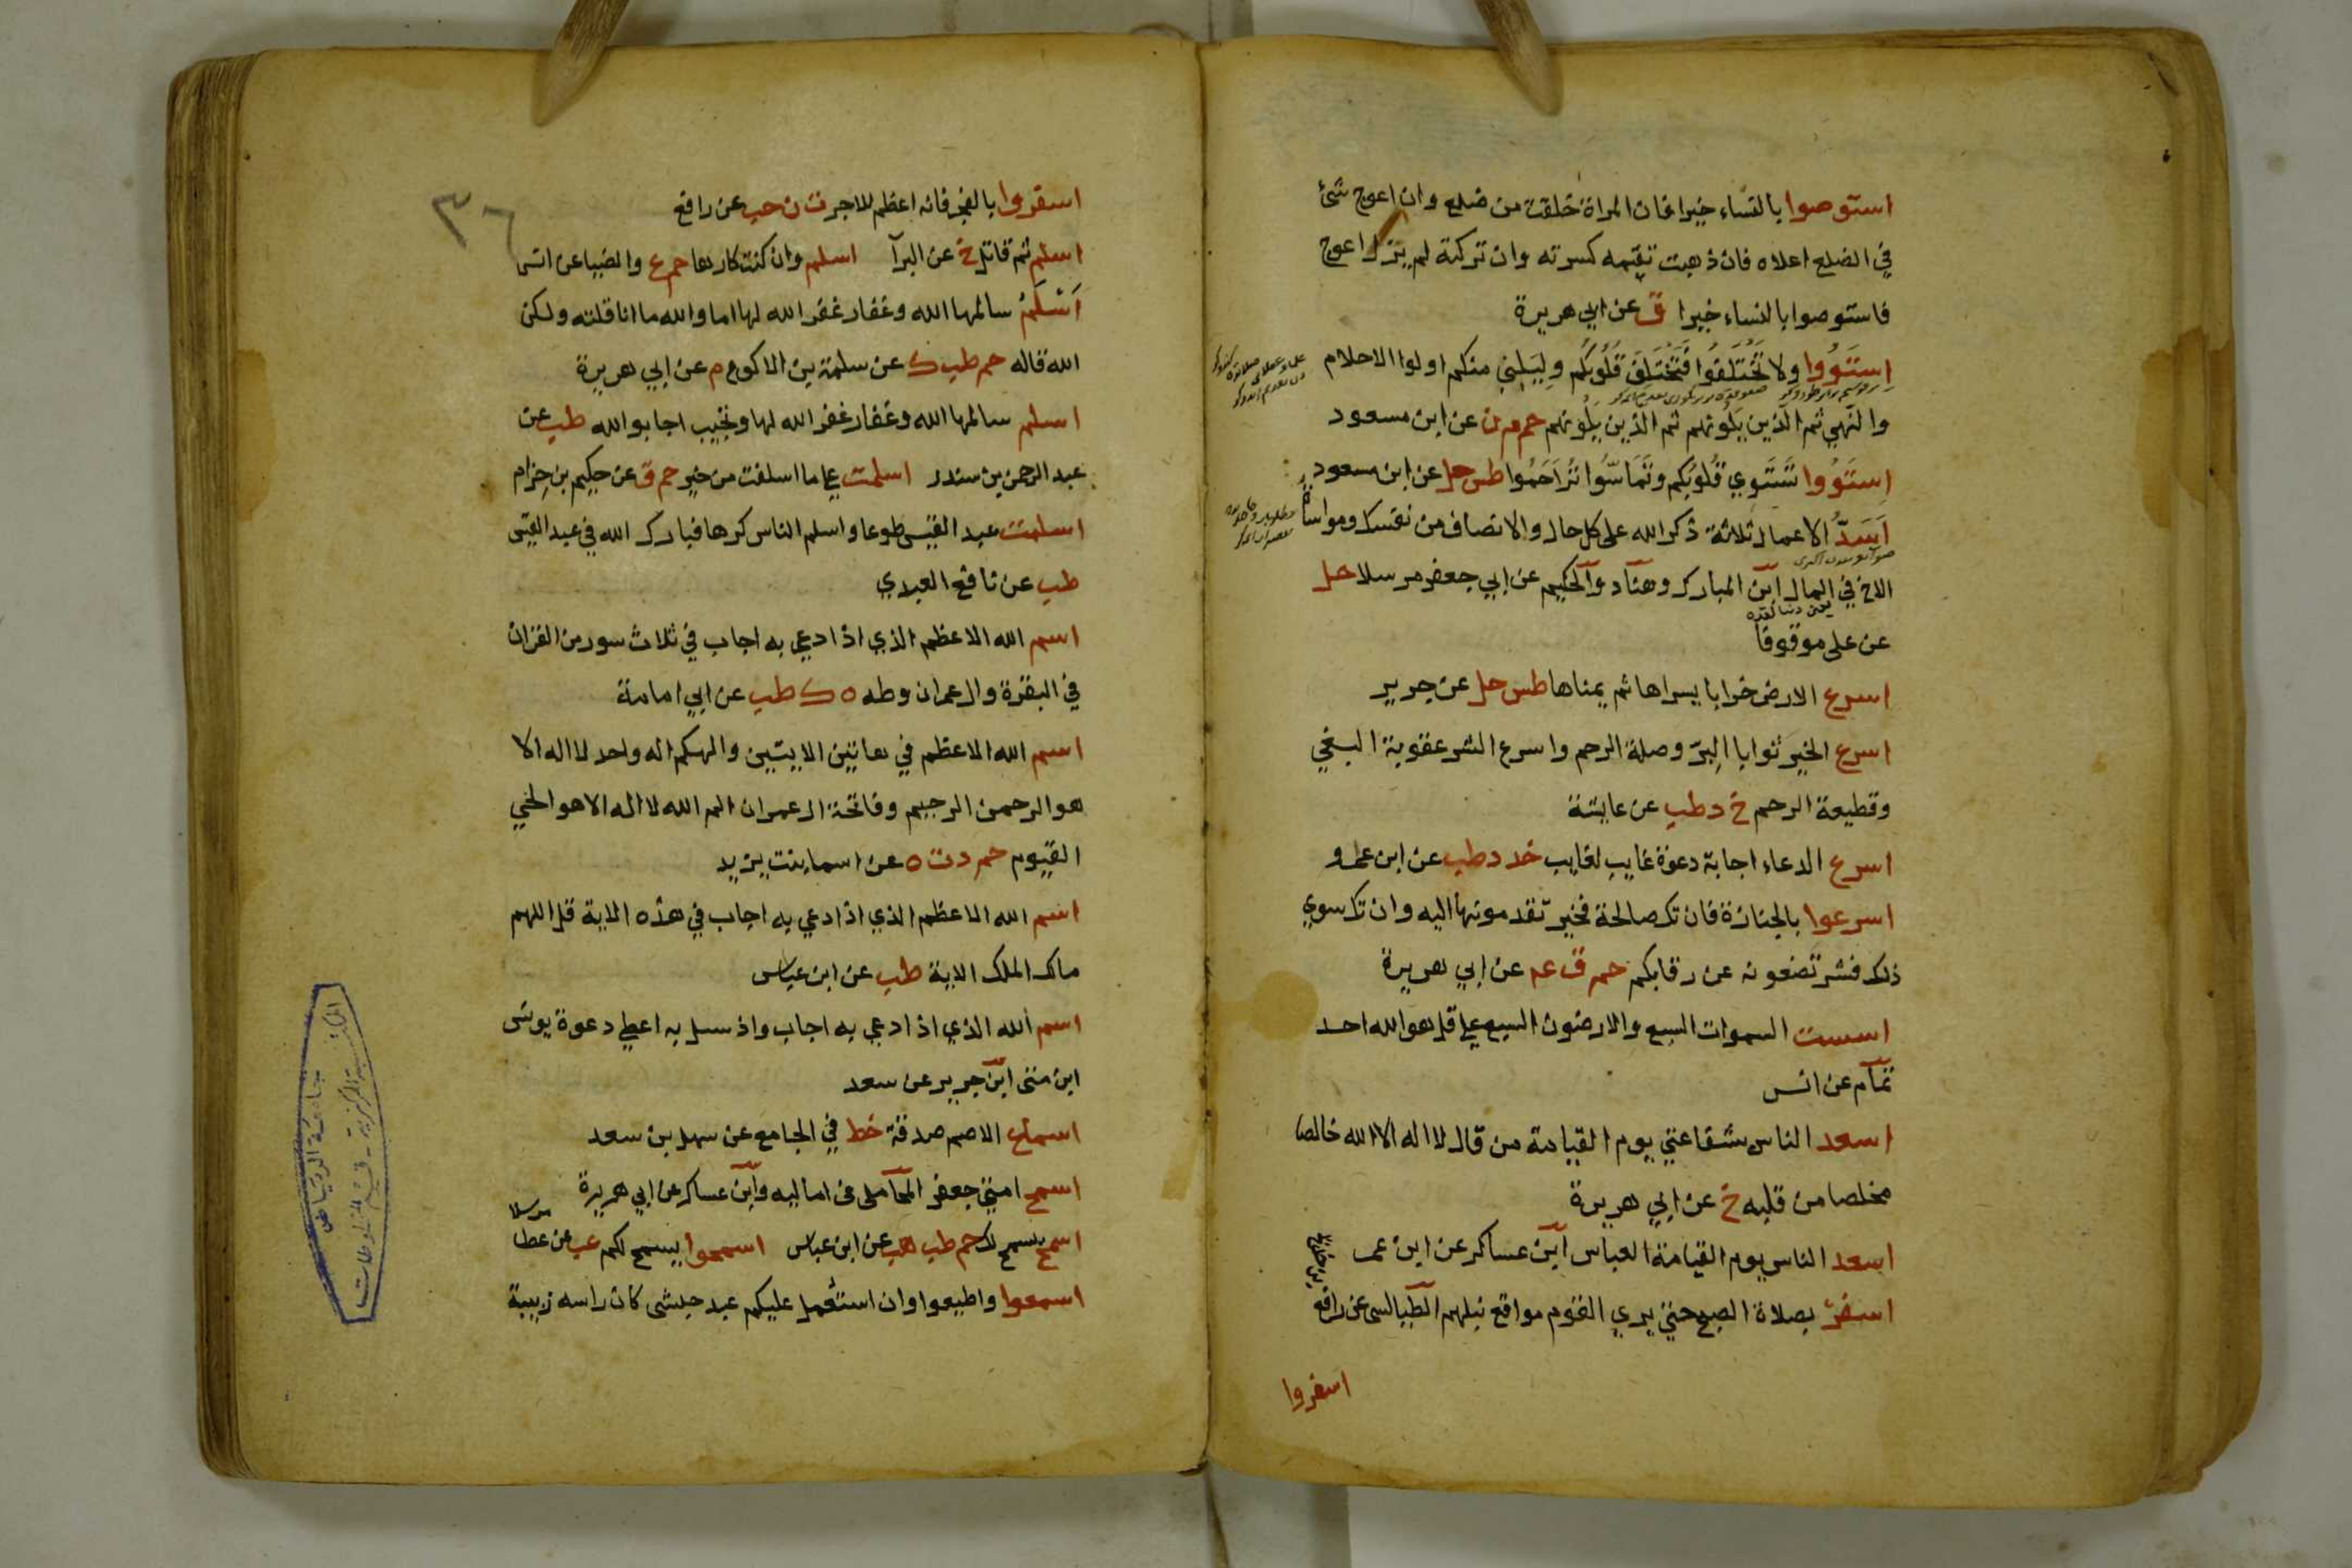 استوصوا بالنساء خيرا فان المراة خلقت من ضلع وان اعوج شئ
في الضلع اعلاه فان ذهبت تقيمه كسرته وان تركته لم يزل اعوج
فاستوصوا بالنساء خيرا ق عن ابي هريرة
استووا ولا تختلفوا فتختلف قلوبكم وليليني منكم اولوا الاحلام
والنهي ثم الذين يلونهم ثم الذين يلونهم حم م ن عن ابن مسعود
استووا تستوي قلوبكم وتماسوا تراحموا طس حل عن ابن مسعود
اسد الاعمال ثلاثة ذكر الله على كل حال والانصاف من نفسك ومواساة
الاخ في المال ابن المبارك وهناد والحكيم عن ابي جعفر مرسلا حل
عن على موقوفا
اسرع الارض خرابا يسراها ثم يمناها طس حل عن جرير
اسرع الخير ثوابا البر وصلة الرحم واسرع الشر عقوبة البغي
وقطيعة الرحم خ د طب عن عايشة
اسرع الدعاء اجابة دعوة غايب لغايب خد د طب عن ابن عمرو
اسرعوا بالجنازة فان تك صالحة فخير تقدمونها اليه وان تك سوي
ذلك فشر تضعونه عن رقابكم حم ق عم عن ابي هريرة
اسست السموات السبع والارضون السبع على قل هو الله احد
تمام عن انس
اسعد الناس بشفاعتي يوم القيامة من قال لا اله الا الله خالصا
مخلصا من قلبه خ عن ابي هريرة
اسعد الناس يوم القيامة العباس ابن عساكر عن ابن عمر
اسفر بصلاة الصبح حتى يري القوم مواقع نبلهم الطيالسى عن رافع
بن خديج
اسفروا
٣٦
اسفروا بالفجر فانه اعظم للاجر ت ن حب عن رافع
اسلم ثم قاتل خ عن البرآ اسلم وان كنت كارها حم ع والضيا عن انس
اسلم سالمها الله وغفار غفر الله لها اما والله ما انا قلته ولكن
الله قاله حم طب ك عن سلمة بن الاكوع م عن ابي هريرة
اسلم سالمها الله وغفار غفر الله لها وتجيب اجابوا الله طب عن
عبد الرحمن بن سندر اسلمت على ما اسلفت من خير حم ق عن حكيم بن حزام
اسلمت عبد القيس طوعا واسلم الناس كرها فبارك الله في عبد القيس
طب عن نافع العبدي
اسم الله الاعظم الذي اذا دعي به اجاب في ثلاث سور من القران
في البقرة وال عمران وطه ه ك طب عن ابي امامة
اسم الله الاعظم في هاتين الايتين والهكم اله واحد لا اله الا
هو الرحمن الرحيم وفاتحة ال عمران الم الله لا اله الا هو الحي
القيوم حم د ت ه عن اسما بنت يزيد
اسم الله الاعظم الذي اذا دعي به اجاب في هذه الاية قل اللهم
مالك الملك الاية طب عن ابن عباس
اسم الله الذي اذا دعي به اجاب واذ سيل به اعطي دعوة يونس
ابن متى ابن جرير عن سعد
اسماع الاصم صدقة خط في الجامع عن سهل بن سعد
اسمح امتي جعفر المحاملى فى اماليه وابن عساكر عن ابي هريرة
اسمح يسمح لك حم طب هب عن ابن عباس اسمحوا يسمح لكم عب عن عطا مرسلا
اسمعوا واطيعوا وان استعمل عليكم عبد حبشى كان راسه زبيبة
جامعة الرياض
المكتبة المركزية - قسم المخطوطات